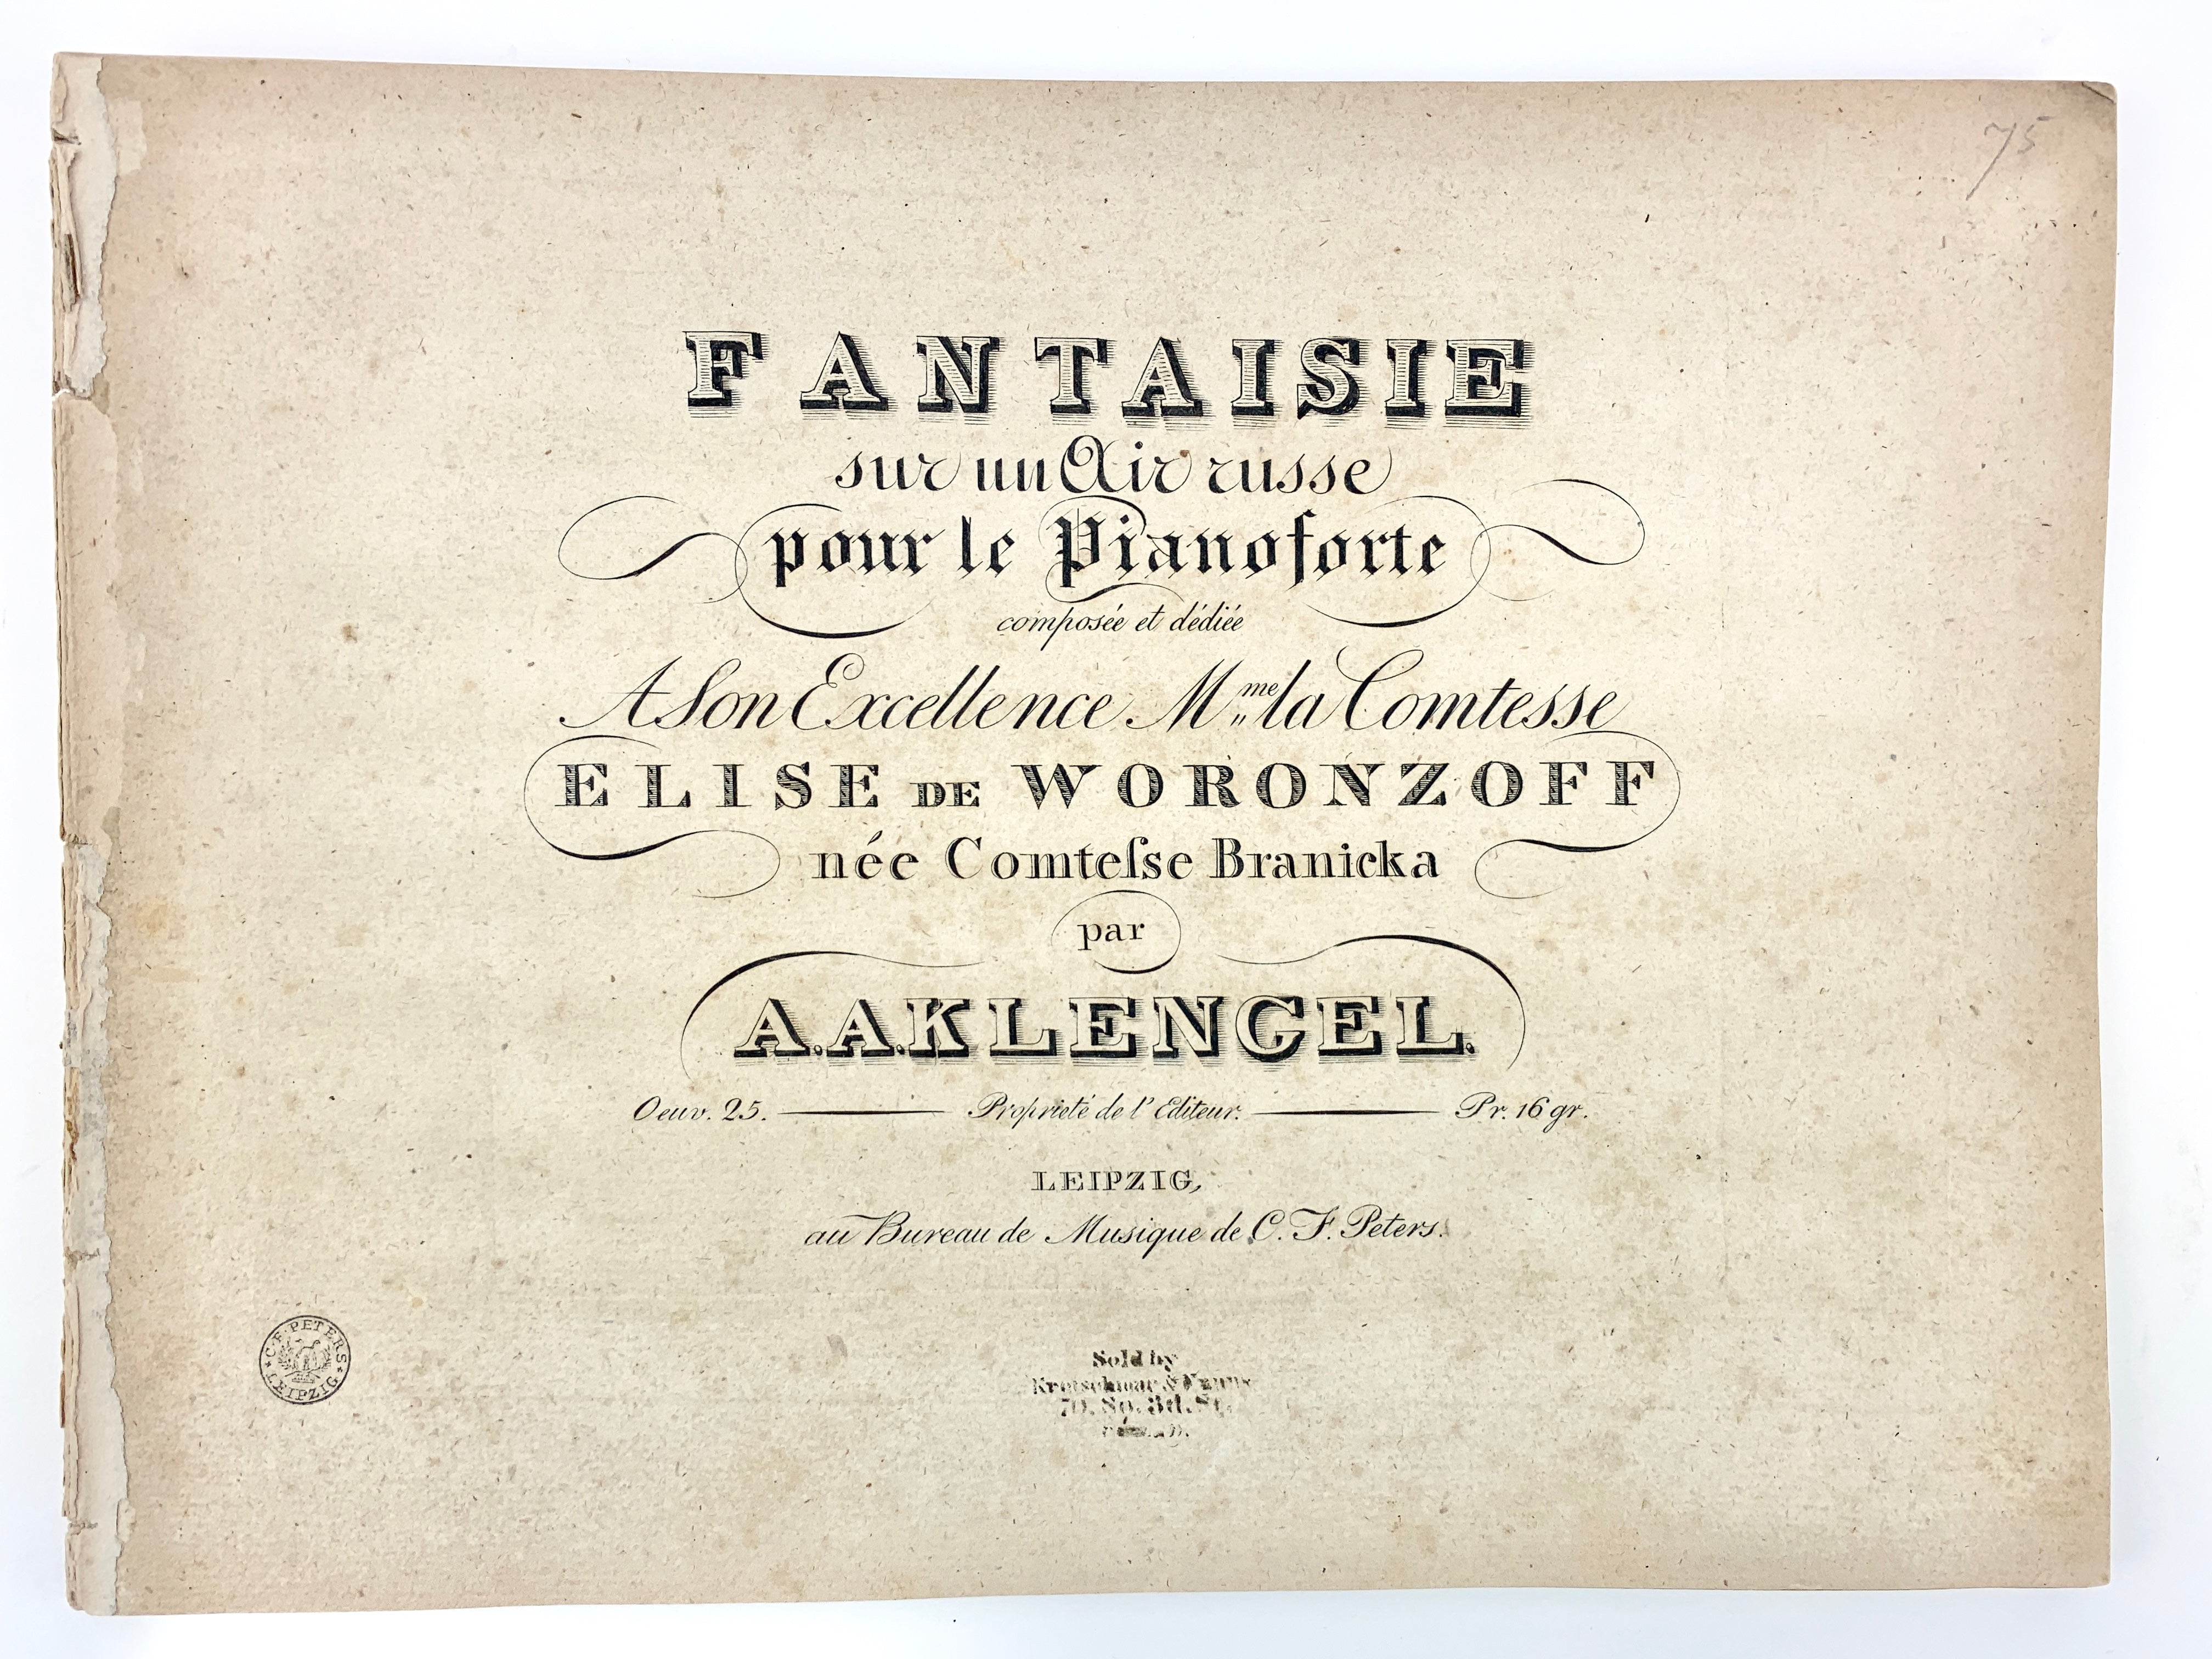 75
FANTAISIE
sur un Air russe
pour le Pianoforte
composée et dédiée
A Son Excellence Mme la Comtesse
ELISE DE WORONZOFF
née Comteſse Branicka
par
A.A.KLENGEL.
Oeuv. 25. Proprieté de l'Editeur. Pr. 16 gr.
LEIPZIG,
au Bureau de Musique de C. F. Peters.
C. F. PETERS
LEIPZIG
Sold by
70. So. 3d. St.